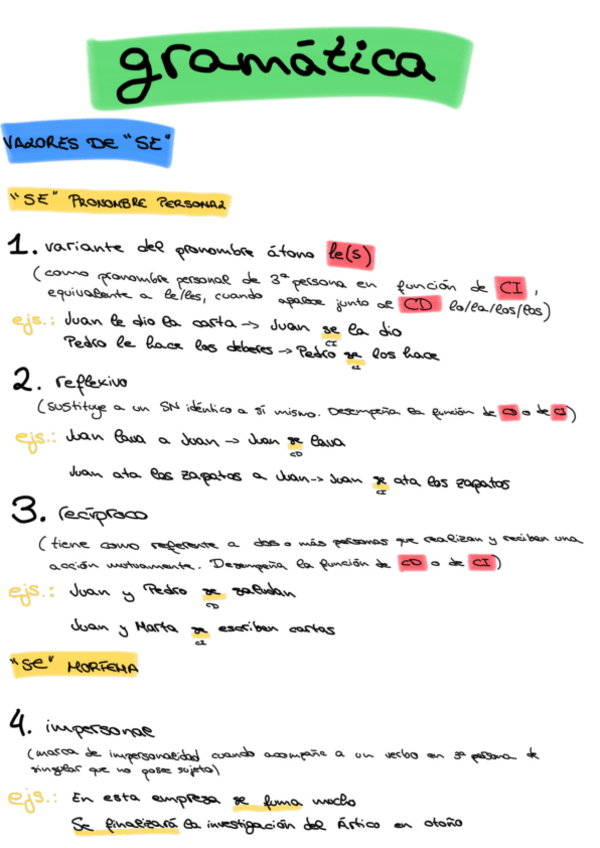 gramática
VALORES DE "SE"
"SE" PRONOMBRE PERSONAL
1. variante del pronombre átono le(s)
(como pronombre personal de 3ª persona en función de CI,
equivalente a le/les, cuando aparece junto al CD lo/la/los/las)
ejs.: Juan le dio la carta → Juan se la dio
CI
Pedro le hace los deberes → Pedro se los hace
CI
2. reflexivo
(sustituye a un SN idéntico a sí mismo. Desempeña la función de CD o de CI)
ejs.: Juan lava a Juan → Juan se lava
CD
Juan ata los zapatos a Juan → Juan se ata los zapatos
CI
3. recíproco
(tiene como referente a dos o más personas que realizan y reciben una
acción mutuamente. Desempeña la función de CD o de CI)
ejs.: Juan y Pedro se saludan
CD
Juan y Marta se escriben cartas
CI
"SE" MORFEMA
4. impersonal
(marca de impersonalidad cuando acompaña a un verbo en 3ª persona de
singular que no posee sujeto)
ejs.: En esta empresa se fuma mucho
Se finalizará la investigación del Ártico en otoño